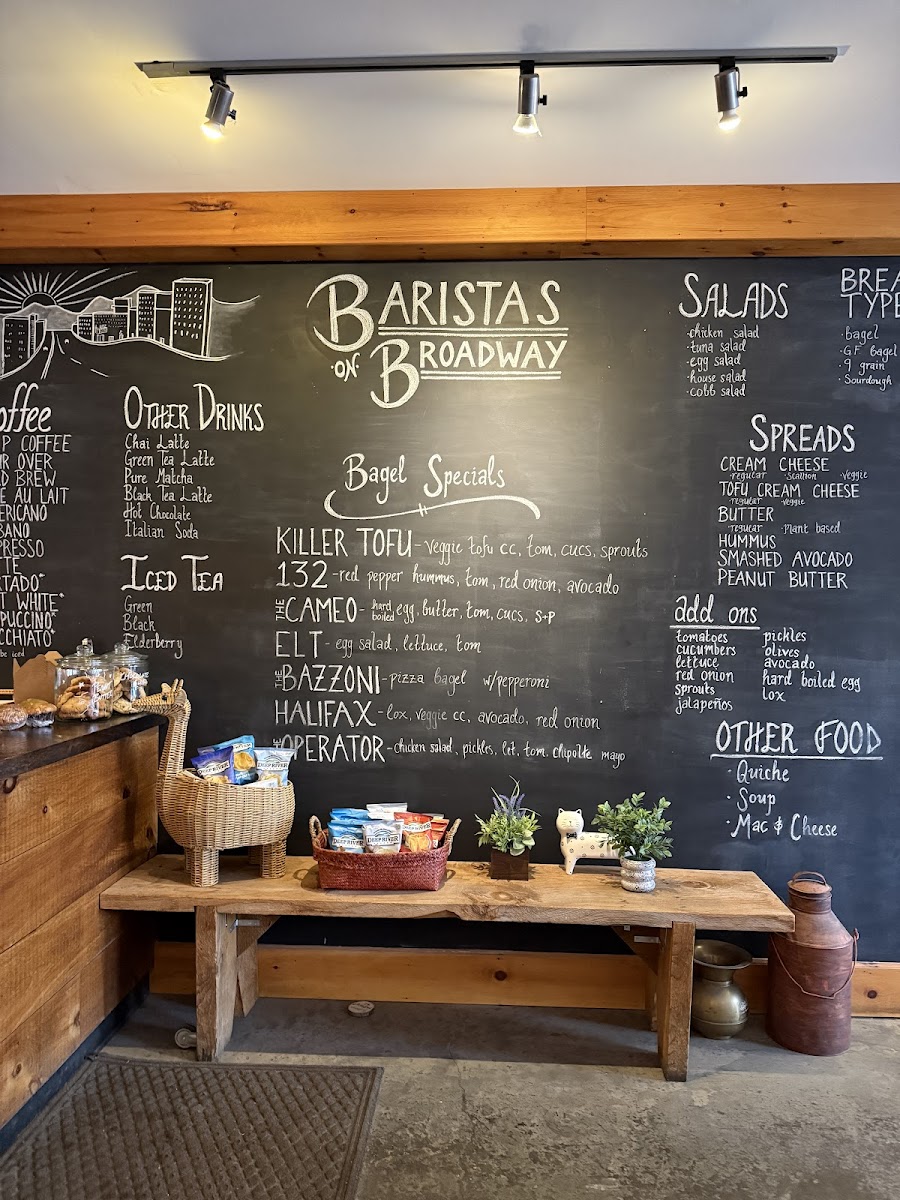 BARISTAS
ON BROADWAY
offee
P COFFEE
R OVER
D BREW
É AU LAIT
ERICANO
BANO
PRESSO
TTE
RTADO*
T WHITE*
PUCCINO*
CCHIATO*
be iced
OTHER DRINKS
Chai Latte
Green Tea Latte
Pure Matcha
Black Tea Latte
Hot Chocolate
Italian Soda
ICED TEA
Green
Black
Elderberry
Bagel Specials
KILLER TOFU - veggie tofu cc, tom, cucs, sprouts
132 - red pepper hummus, tom, red onion, avocado
THE CAMEO - hard boiled egg, butter, tom, cucs, S+P
ELT - egg salad, lettuce, tom
THE BAZZONI - pizza bagel w/pepperoni
HALIFAX - lox, veggie cc, avocado, red onion
THE OPERATOR - chicken salad, pickles, let, tom, chipotle mayo
SALADS
·chicken salad
·tuna salad
·egg salad
·house salad
·cobb salad
BREA
TYPE
·bagel
·GF bagel
·9 grain
·Sourdough
SPREADS
CREAM CHEESE
·regular ·scallion ·veggie
TOFU CREAM CHEESE
·regular ·veggie
BUTTER
·regular ·plant based
HUMMUS
SMASHED AVOCADO
PEANUT BUTTER
add ons
tomatoes
cucumbers
lettuce
red onion
sprouts
jalapeños
pickles
olives
avocado
hard boiled egg
lox
OTHER FOOD
·Quiche
·Soup
·Mac & Cheese
DEEP RIVER
DEEP RIVER
DEEP RIVER